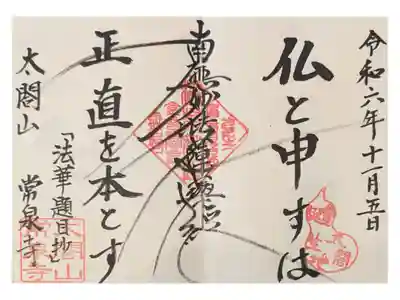 令和六年十一月五日
仏と申すは
南無妙法蓮華経
正直を本とす
「法華題目抄」
太閤山 常泉寺
太閤山
常泉寺